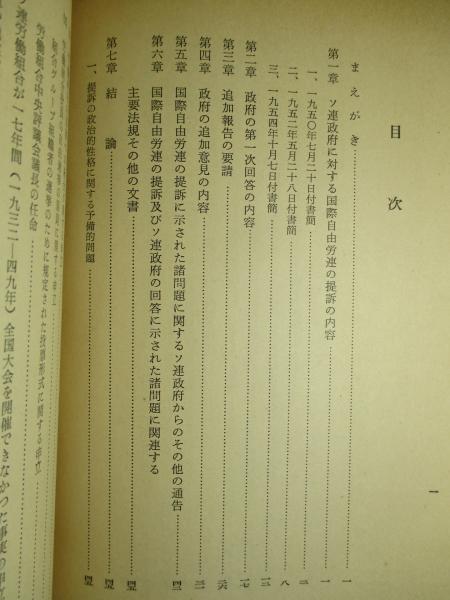 目次
一
まえがき……一
第一章 ソ連政府に対する国際自由労連の提訴の内容……一
一、一九五〇年七月二十日付書簡……一
二、一九五二年五月二十八日付書簡……八
三、一九五四年十月七日付書簡……一三
第二章 政府の第一次回答の内容……一七
第三章 追加報告の要請……二六
第四章 政府の追加意見の内容……
第五章 国際自由労連の提訴に示された諸問題に関するソ連政府からのその他の通告……
第六章 国際自由労連の提訴及びソ連政府の回答に示された諸問題に関連する
主要法規その他の文書……
第七章 結論……
一、提訴の政治的性格に関する予備的問題……
組合グループ組織者の選挙のために規定された投票形式に関する申立
労働組合中央評議会議長の任命
ソ連労働組合が一七年間（一九三二―四九年）全国大会を開催できなかつた事実の申立